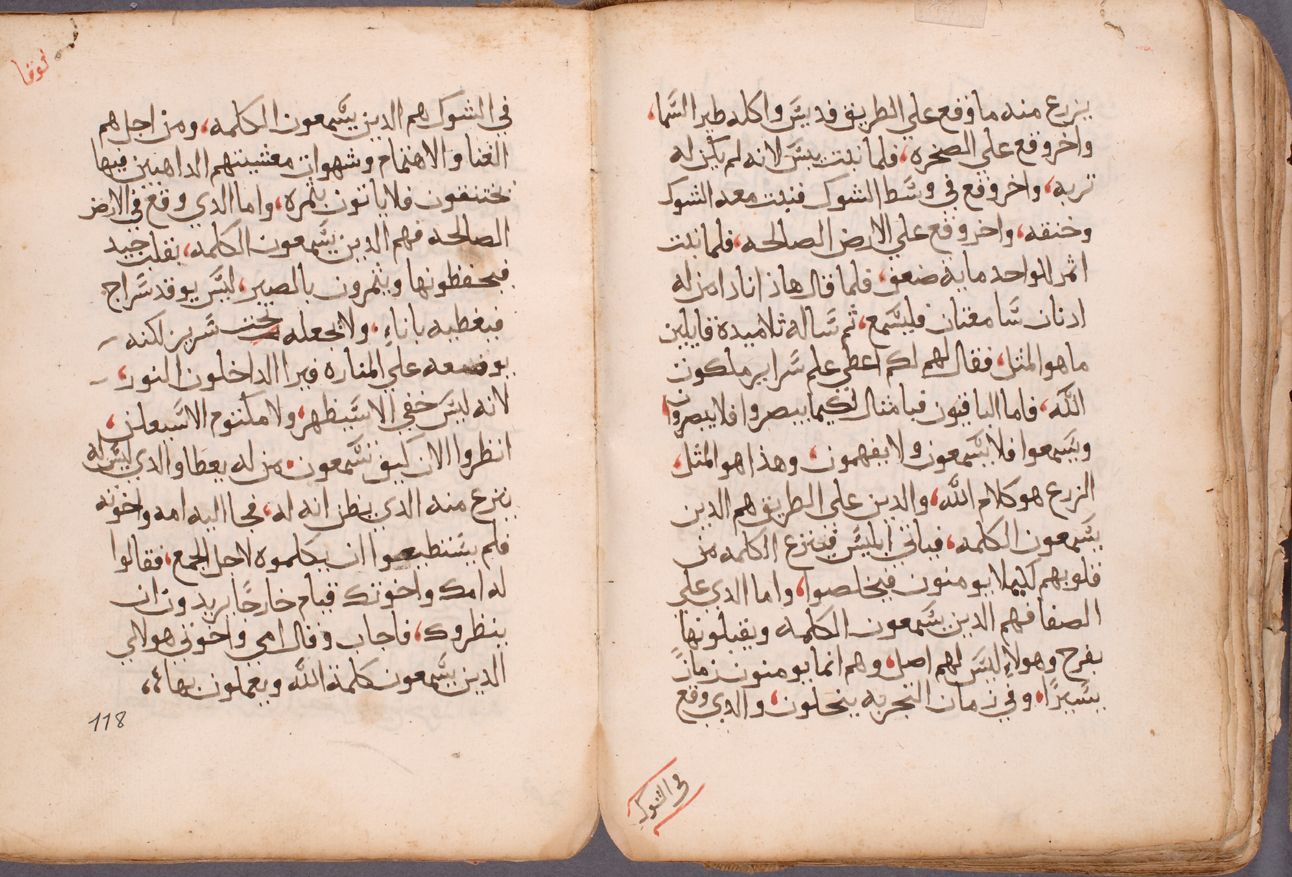 يزرع منه ما وقع علي الطريق فديس واكله طير السما،
واخر وقع علي الصخره، فلما نبت يبس لانه لم يكن له
تربه، واخر وقع في وسط الشوك فنبت معه الشوك
وخنقه، واخر وقع علي الارض الصالحه، فلما نبت
اثمر للواحد مايه ضعف، فلما قال هاذا نادا من له
ادنان سامعتان فليسمع، ثم ساله تلاميده قايلين
ما هو المثل، فقال لهم لكم اعطي علم سراير ملكوت
الله، فاما الباقيون فبامثال لكيما يبصروا فلا يبصرون،
ويسمعوا فلا يسمعون ولا يفهمون، وهذا هو المثل،
الزرع هو كلام الله، والدين علي الطريق هم الدين
يسمعون الكلمه، فياتي ابليس فينزع الكلمه من
قلوبهم كيما لا يومنون فيخلصوا، واما الدي علي
الصفا فهم الدين يسمعون الكلمه ويقبلونها
بفرح وهولاء ليس لهم اصل، وهم انما يومنون زمانً
يسيرًا، وفي زمان التجربه ينحلون، والدي وقع
في الشوك
لوقا
في الشوك هم الدين يسمعون الكلمه، ومن اجل هم
الغنا والاهتمام وشهوات معشيتهم الداهبين فيها
يختنقون فلا ياتون بثمره، واما الدي وقع في الارض
الصالحه فهم الدين يسمعون الكلمه، بقلب جيد
فيحفظونها ويثمرون بالصبر، ليس يوقد سراج
فيغطيه باناءٍ، ولا يجعله تحت سرير لكنه
يوضعه علي المناره فيرا الداخلون النور،
لانه ليس خفي الا سيظهر، ولا مكتوم الا سيعلن،
انظروا الان كيف تسمعون، من له يعطا والدي ليس له
ينزع منه الدي يظن انه له، فجا اليه امه واخوته
فلم يستطيعوا ان يكلموه لاجل الجمع، فقالوا
له امك واخوتك قيام خارجًا يريدون ان
ينظروك، فاجاب وقال امي واخوتي هولاي
الدين يسمعون كلمة الله ويعملون بها،
118